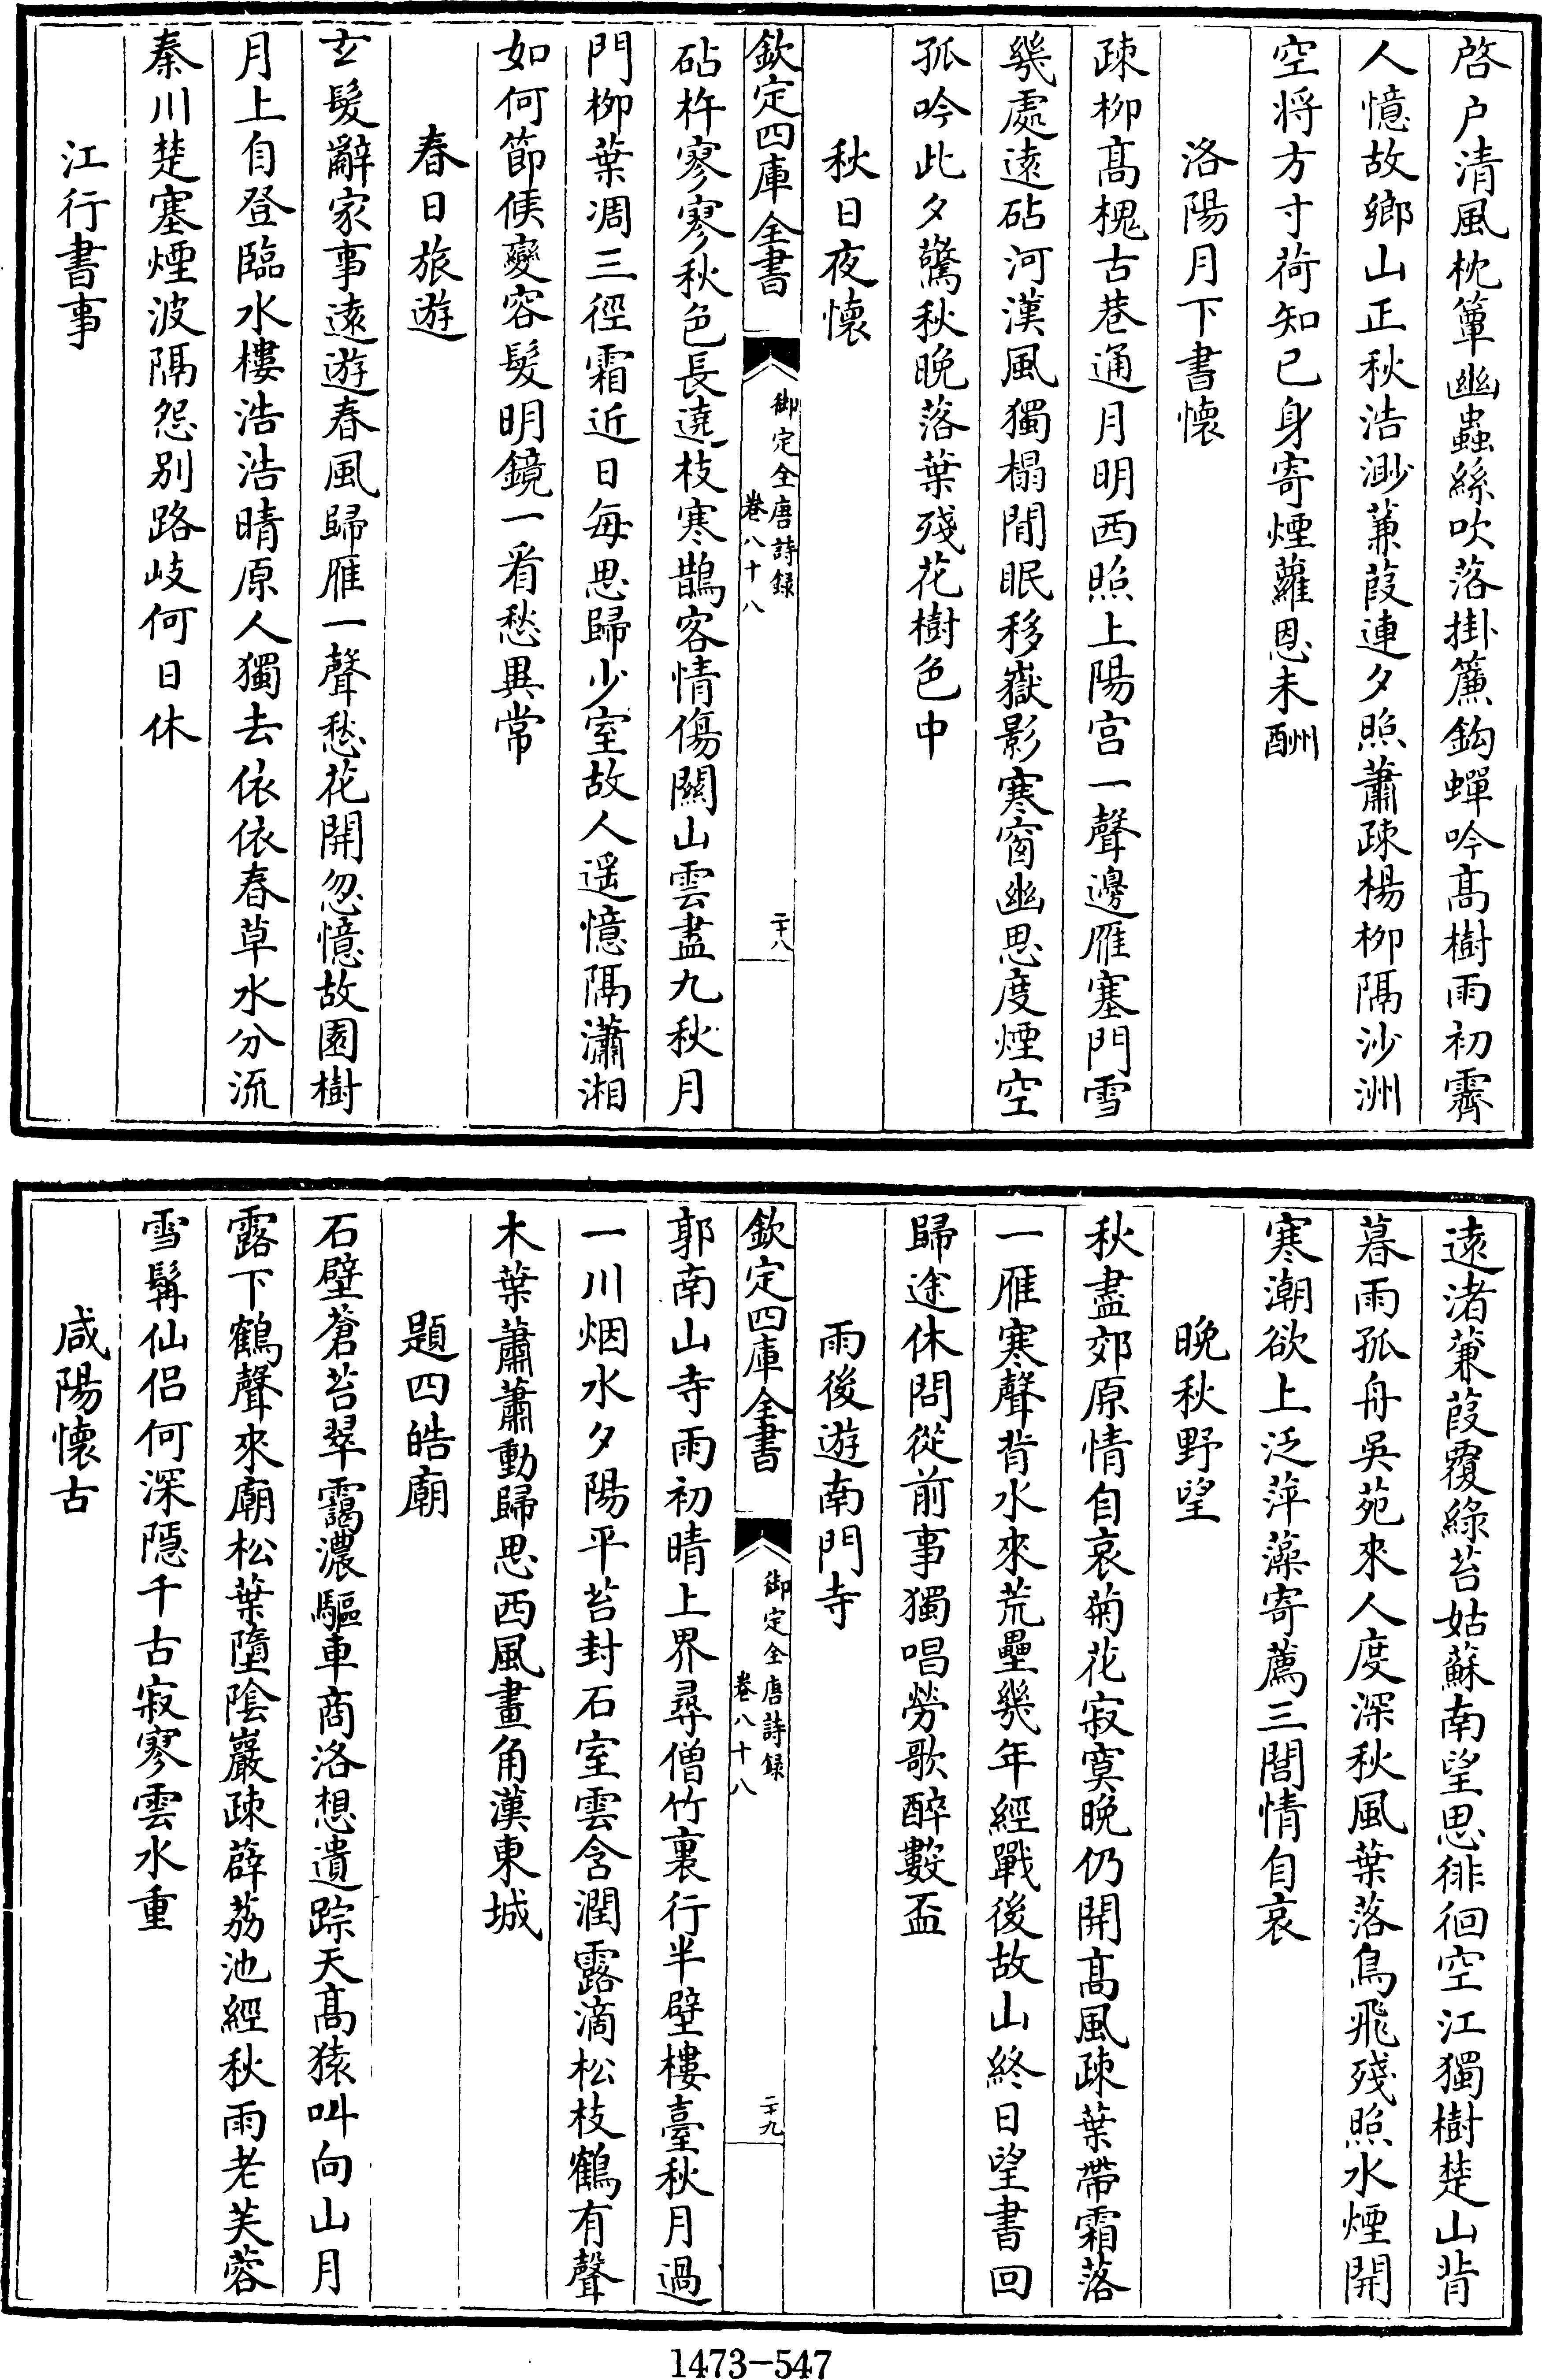 啓户清風枕簟幽蟲絲吹落掛簾鈎蟬吟髙樹雨初霽
人憶故鄉山正秋浩渺蒹葭連夕照蕭疎楊栁隔沙洲
空将方寸荷知已身寄煙蘿恩未酬
洛陽月下書懷
疎栁髙槐古巷通月明西照上陽宫一聲邊雁塞門雪
幾處逺砧河漢風獨榻閒眠移嶽影寒窗幽思度煙空
孤吟此夕驚秋晚落葉殘花樹色中
秋日夜懷
欽定四庫全書
御定全唐詩録
卷八十八
二十八
砧杵寥寥秋色長遶枝寒鵲客情傷關山雲盡九秋月
門栁葉凋三徑霜近日每思歸少室故人遥憶隔瀟湘
如何節候變容髮明鏡一看愁異常
春日旅遊
玄髮辭家事逺遊春風歸雁一聲愁花開忽憶故園樹
月上自登臨水樓浩浩晴原人獨去依依春草水分流
秦川楚塞煙波隔怨别路岐何日休
江行書事
逺渚蒹葭覆緑苔姑蘇南望思徘徊空江獨樹楚山背
暮雨孤舟吳苑來人度深秋風葉落鳥飛殘照水煙開
寒潮欲上泛萍藻寄薦三閭情自哀
晚秋野望
秋盡郊原情自哀菊花寂寞晚仍開髙風疎葉帶霜落
一雁寒聲背水來荒壘幾年經戰後故山終日望書回
歸途休問從前事獨唱勞歌醉數盃
雨後遊南門寺
欽定四庫全書
御定全唐詩録
卷八十八
二十九
郭南山寺雨初晴上界尋僧竹裏行半壁樓臺秋月過
一川烟水夕陽平苔封石室雲含潤露滴松枝鶴有聲
木葉蕭蕭動歸思西風畫角漢東城
題四皓廟
石壁蒼苔翠靄濃驅車商洛想遺踪天髙猿叫向山月
露下鶴聲來廟松葉墮隂巖疎薜荔池經秋雨老芙蓉
雪髯仙侣何深隱千古寂寥雲水重
咸陽懷古
1473-547